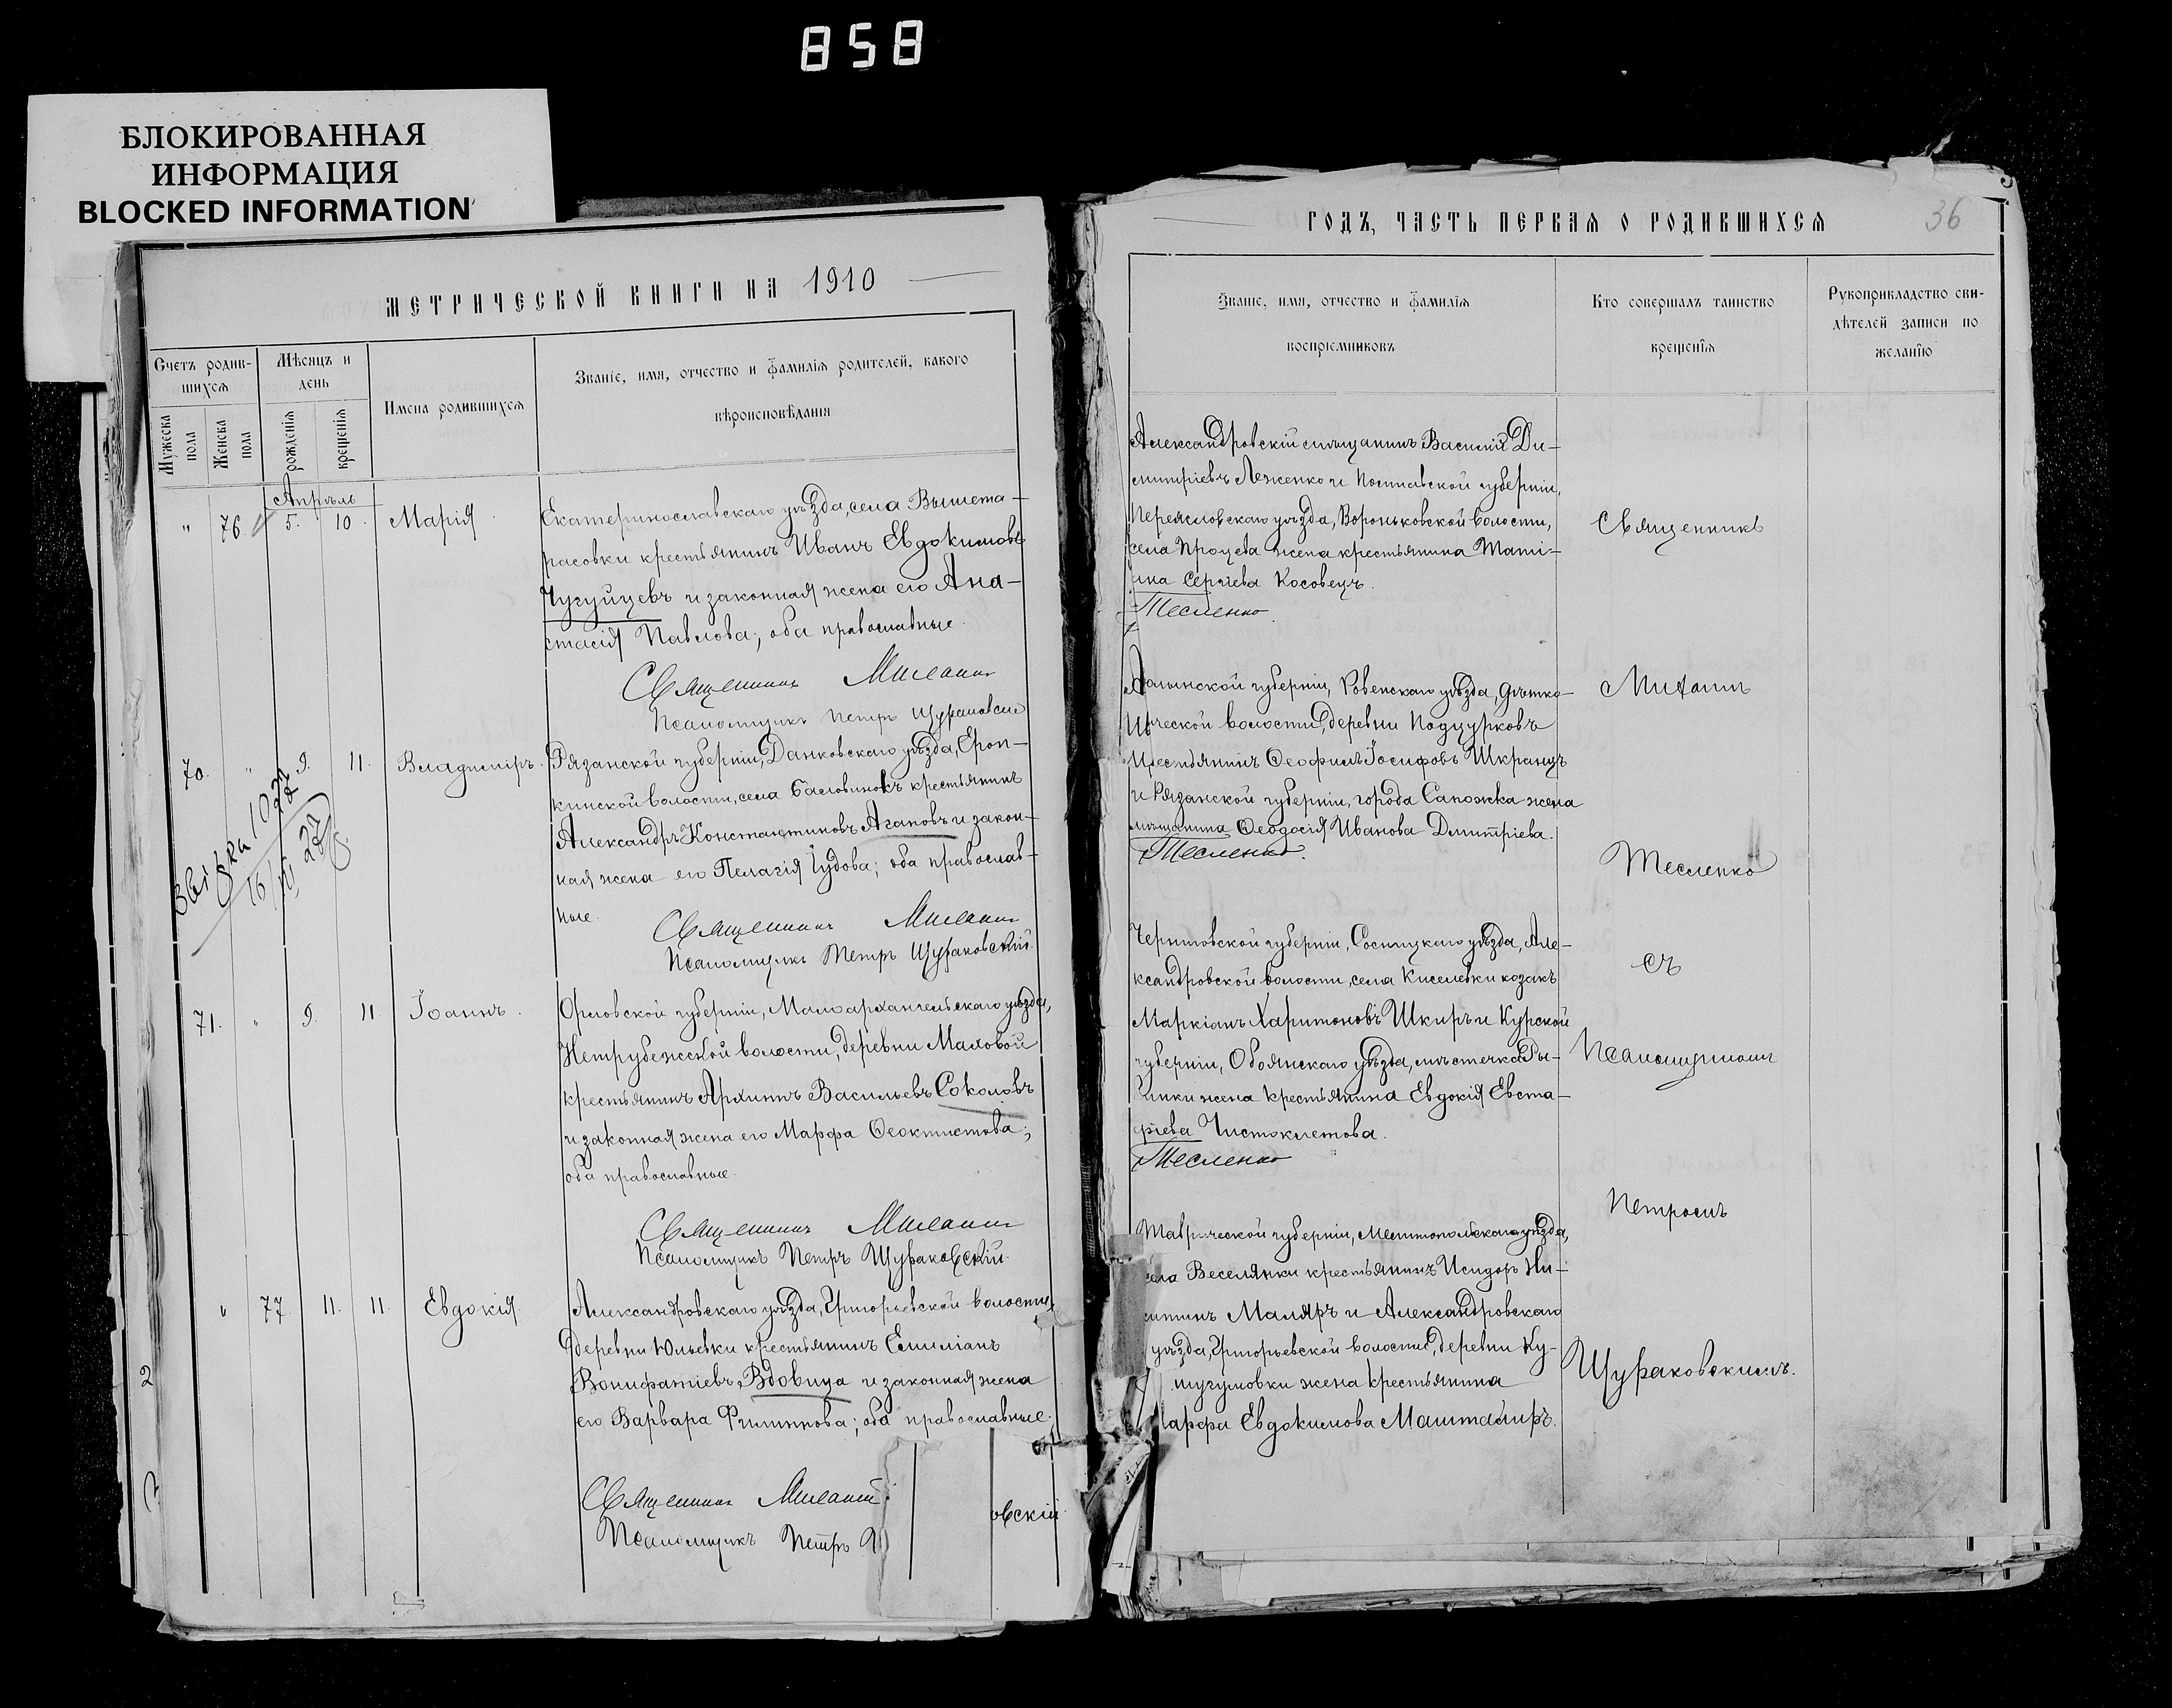 858
БЛОКИРОВАННАЯ
ИНФОРМАЦИЯ
BLOCKED INFORMATION
МЕТРИЧЕСКОЙ КНИГИ НА 1910
Счетъ родив-
шихся
Мужеска пола
Женска пола
Мѣсяцъ и
день
рожденія
крещенія
Имена родившихся
Званіе, имя, отчество и фамилія родителей, какого
вѣроисповѣданія
Апрѣль
" 76. 5. 10. Марія
Екатеринославскаго уѣзда, села Вышета-
расовки крестьянинъ Иванъ Евдокимовъ
Чугуйцевъ и законная жена его Ана-
стасія Павлова; оба православные.
Священникъ
Псаломщикъ Петръ Щураковскій
70. " 9. 11. Владиміръ.
Рязанской губерніи, Данковскаго уѣзда, Ероп-
кинской волости, села крестьянинъ
Александръ Константиновъ Агаповъ и закон-
ная жена его Пелагія Іудова; оба православ-
ные.
Священникъ
Псаломщикъ Петръ Щураковскій.
71. " 9. 11. Іоаннъ.
Орловской губерніи, Малоархангельскаго уѣзда,
волости, деревни Маховой
крестьянинъ Архипъ Васильевъ Соколовъ
и законная жена его Марфа Феоктистова;
оба православные.
Священникъ
Псаломщикъ Петръ Щураковскій
" 77 11. 11. Евдокія.
Александровскаго уѣзда, Григорьевской волости,
деревни Юльевки крестьянинъ Емиліанъ
Вонифатіевъ Вдовица и законная жена
его Варвара Филиппова; оба православные.
Священникъ
Псаломщикъ Петръ
овскій
2
ГОДЪ, ЧАСТЬ ПЕРВАЯ О РОДИВШИХСЯ
36
Званіе, имя, отчество и фамилія
воспріемниковъ
Кто совершалъ таинство
крещенія
Рукоприкладство сви-
дѣтелей записи по
желанію
Александровскій мѣщанинъ Василій Ди-
митріевъ Леженко и Полтавской губерніи,
Переяславскаго уѣзда, Вороньковской волости,
села Процева жена крестьянина Татi-
ана Сергіева Косовецъ.
Тесленко.
Волынской губерніи, Ровенскаго уѣзда,
волости, деревни
крестьянинъ Феофилъ Іосифовъ
и Рязанской губерніи, города Сапожка жена
мѣщанина Феодосія Иванова Дмитріева.
Тесленко.
Черниговской губерніи, Сосницкаго уѣзда, Але-
ксандровской волости, села Киселевки козакъ
Маркіанъ Харитоновъ Шкиръ и Курской
губерніи, Обоянскаго уѣзда, мѣстечка
жена крестьянина Евдокія Евста-
фіева Чистоклетова.
Тесленко
Таврической губерніи, Мелитопольскаго уѣзда,
села Веселянки крестьянинъ Исидоръ Ни-
китинъ Маляръ и Александровскаго
уѣзда, Григорьевской волости, деревни Ку-
шугумовки жена крестьянина
Марфа Евдокимова
Священникъ
Михаилъ
Тесленко
съ
Псаломщикомъ
Петромъ
Щураковскимъ.